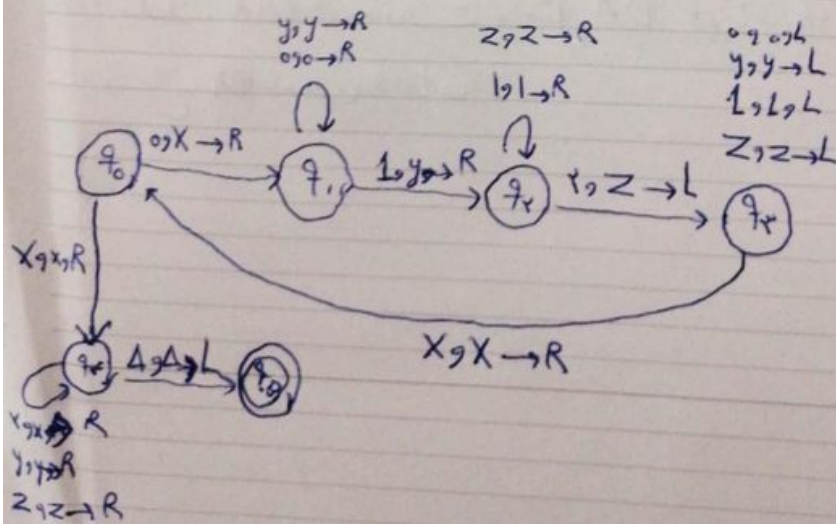 y, y → R
0, 0 → R
z, z → R
1, 1 → R
0, 0, L
y, y → L
1, 1, L
z, z → L
q₀
0, X → R
q₁
1, y → R
q۲
۲, Z → L
q۳
X, x, R
X, X → R
q۴
Δ, Δ, L
q۵
R
y, y → R
z, z → R